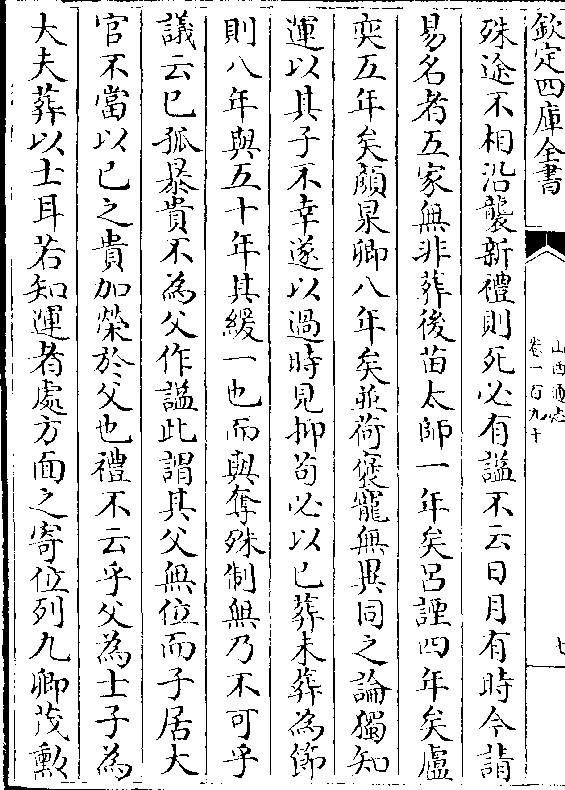 欽定四庫全書
山西通志
卷一百九十
七
殊途不相沿襲新禮則死必有諡不云日月有時今請
易名者五家無非葬後苗太師一年矣呂諲四年矣盧
奕五年矣顔杲卿八年矣並荷褒寵無異同之論獨知
運以其子不幸遂以過時見抑茍必以已葬未葬為節
則八年與五十年其緩一也而與奪殊制無乃不可乎
議云已孤暴貴不為父作諡此謂其父無位而子居大
官不當以已之貴加榮於父也禮不云乎父為士子為
大夫葬以士耳若知運者處方面之寄位列九卿茂勲